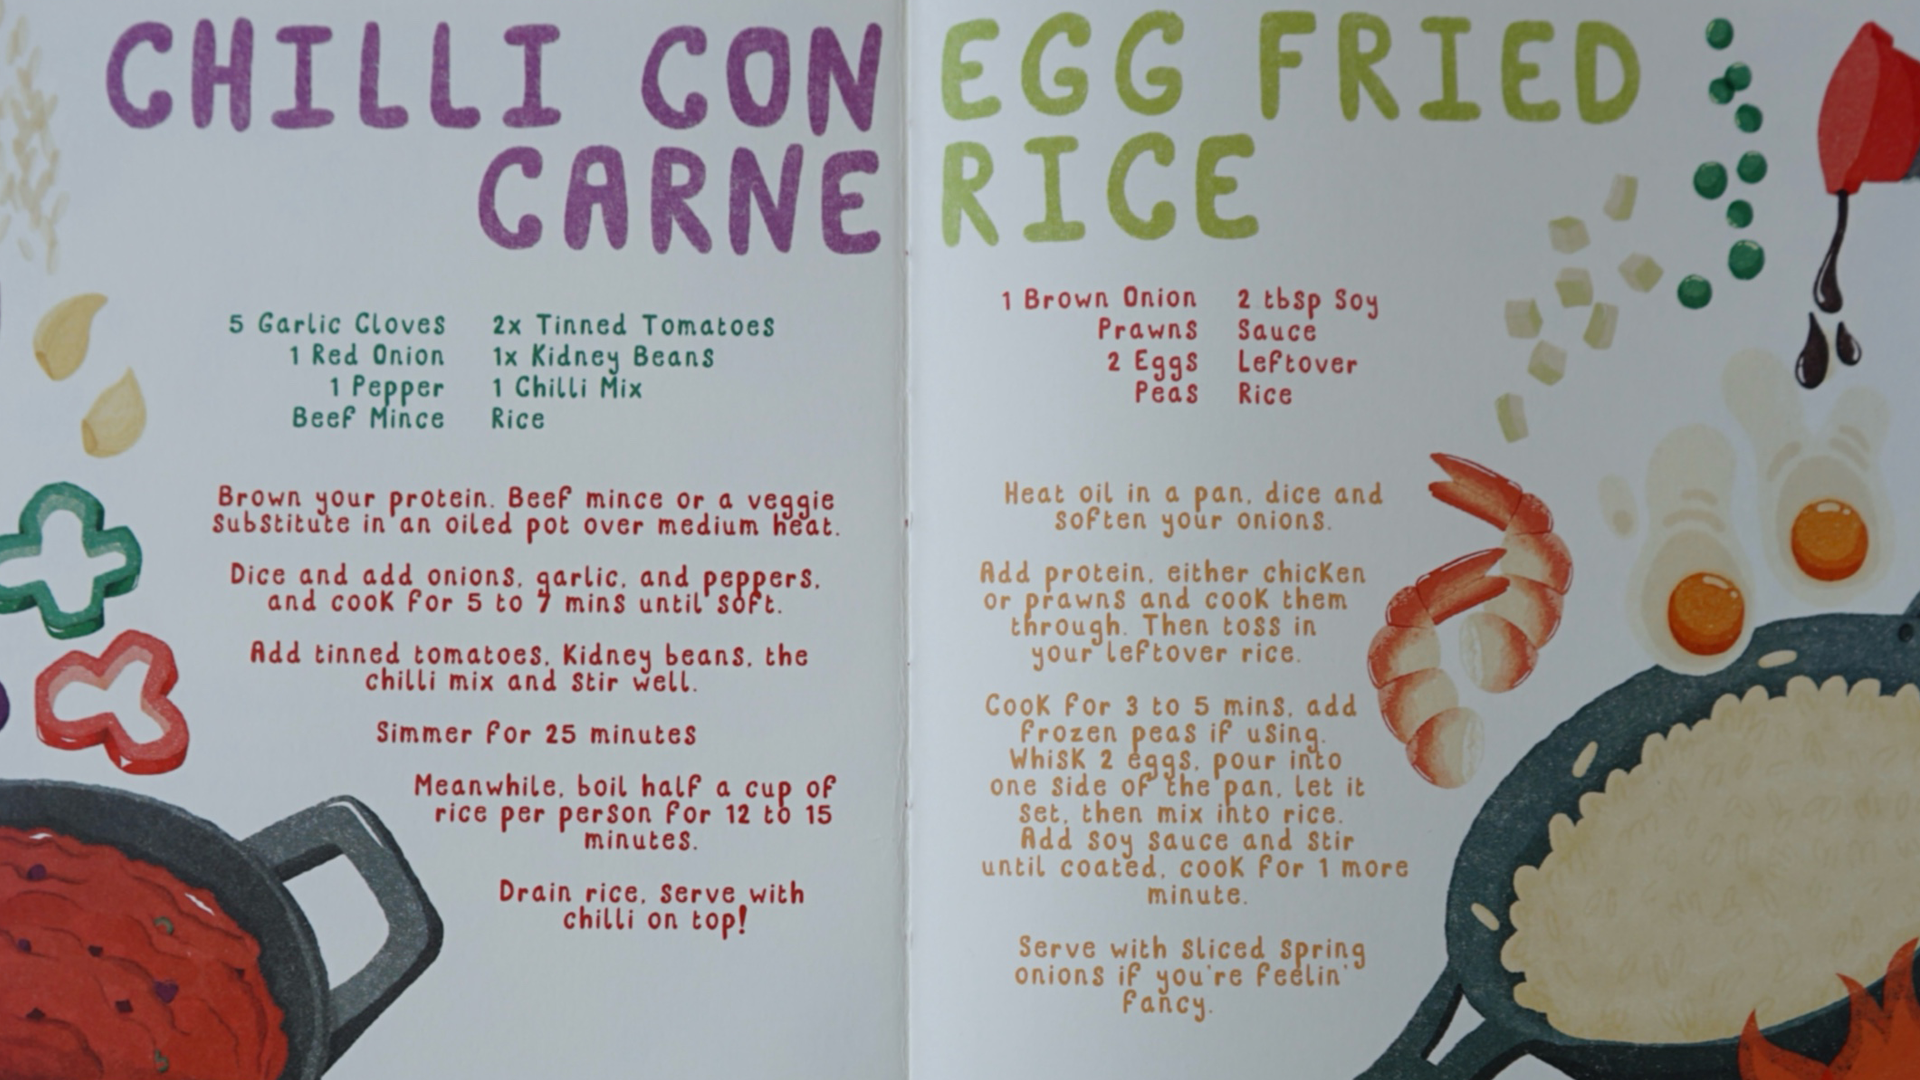 CHILLI CON
CARNE
5 Garlic Cloves
1 Red Onion
1 Pepper
Beef Mince
2x Tinned Tomatoes
1x Kidney Beans
1 Chilli Mix
Rice
Brown your protein. Beef mince or a veggie
substitute in an oiled pot over medium heat.
Dice and add onions, garlic, and peppers,
and cook for 5 to 7 mins until soft.
Add tinned tomatoes, kidney beans, the
chilli mix and stir well.
Simmer for 25 minutes
Meanwhile, boil half a cup of
rice per person for 12 to 15
minutes.
Drain rice, serve with
chilli on top!
EGG FRIED
RICE
1 Brown Onion
Prawns
2 Eggs
Peas
2 tbsp Soy
Sauce
Leftover
Rice
Heat oil in a pan, dice and
soften your onions.
Add protein, either chicken
or prawns and cook them
through. Then toss in
your leftover rice.
Cook for 3 to 5 mins, add
frozen peas if using.
Whisk 2 eggs, pour into
one side of the pan, let it
set, then mix into rice.
Add soy sauce and stir
until coated, cook for 1 more
minute.
Serve with sliced spring
onions if you're feelin'
fancy.